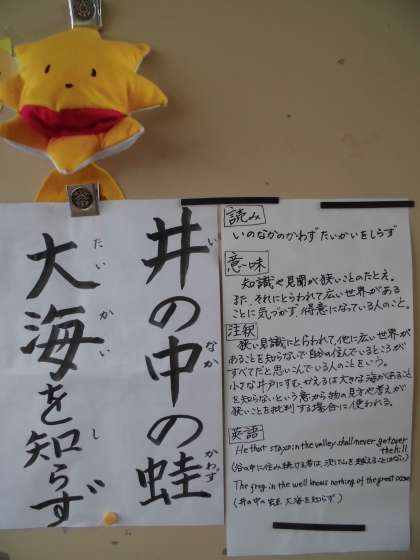 井の中の蛙
い
なか
かわず
大海を知らず
たいかい
し
読み
いのなかのかわず たいかいをしらず
意味
知識や見聞が狭いことのたとえ。
また、それにとらわれて広い世界がある
ことに気づかず、得意になっている人のこと。
注釈
狭い見識にとらわれて、他に広い世界が
あることを知らないで、自分の住んでいるところが
すべてだと思いこんでいる人のことをいう。
小さな井戸にすむかえるは大きな海があること
を知らないという意から物の見方や考えが
狭いことを批判する場合に使われる。
英語
He that stays in the valley shall never get over
the hill
(谷の中に住み続ける者は、決して山を越えることはない)
The frog in the well knows nothing of the great ocean
(井の中の蛙 大海を知らず)